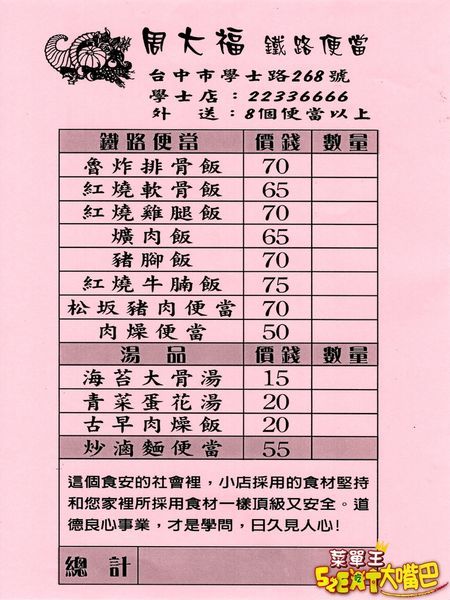 周大福 鐵路便當
台中市學士路268號
學士店：22336666
外送：8個便當以上
鐵路便當 價錢 數量
魯炸排骨飯 70
紅燒軟骨飯 65
紅燒雞腿飯 70
爌肉飯 65
豬腳飯 70
紅燒牛腩飯 75
松坂豬肉便當 70
肉燥便當 50
湯品 價錢 數量
海苔大骨湯 15
青菜蛋花湯 20
古早肉燥飯 20
炒滷麵便當 55
這個食安的社會裡，小店採用的食材堅持
和您家裡所採用食材一樣頂級又安全。道
德良心事業，才是學問，日久見人心!
總計
菜單王
52EAT大嘴巴